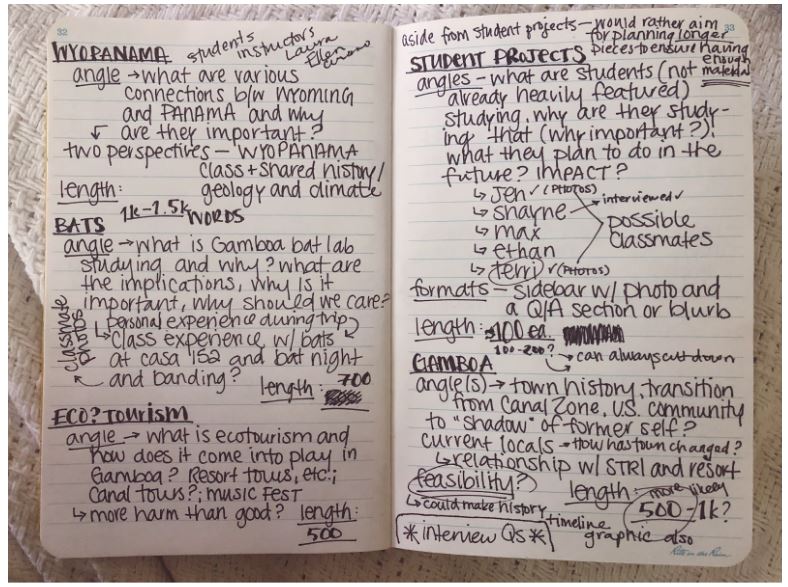 32
WYOPANAMA students instructors
Laura
Ellen
angle → what are various
connections b/w WYOMING
and PANAMA and why
↙ are they important?
two perspectives — WYOPANAMA
class + shared history/
geology and climate
length:
1k-1.5k WORDS
BATS
angle → what is Gamboa bat lab
studying and why? what are
the implications, why is it
important, why should we care?
personal experience during trip
↳ class experience w/ bats
at casa 152 and bat night
and banding?
classmate
photos
length: 700
ECO?TOURISM
angle → what is ecotourism and
how does it come into play in
Gamboa? Resort tours, etc.;
Canal tours?; MUSIC FEST
↳ more harm than good? length:
500
33
aside from student projects — would rather aim
for planning longer
pieces to ensure having
enough
material
STUDENT PROJECTS
angles — what are students (not
already heavily featured)
studying, why are they study-
ing that (why important?),
what they plan to do in the
future? IMPACT?
↳ Jen ✓ (PHOTOS)
↳ shayne → interviewed ✓
↳ max
↳ ethan
↳ terri ✓ (PHOTOS)
possible
classmates
formats — sidebar w/ photo and
a Q/A section or blurb
length: 100 ea.
100-200? → can always cut down
GAMBOA
angle(s) → town history, transition
from Canal Zone, U.S. community
to "shadow" of former self?
current locals → How has town changed?
↳ relationship w/ STRI and resort
feasibility? length: more likely
500-1k?
↳ could make history
timeline
graphic also
*interview Qs*
Rite in the Rain